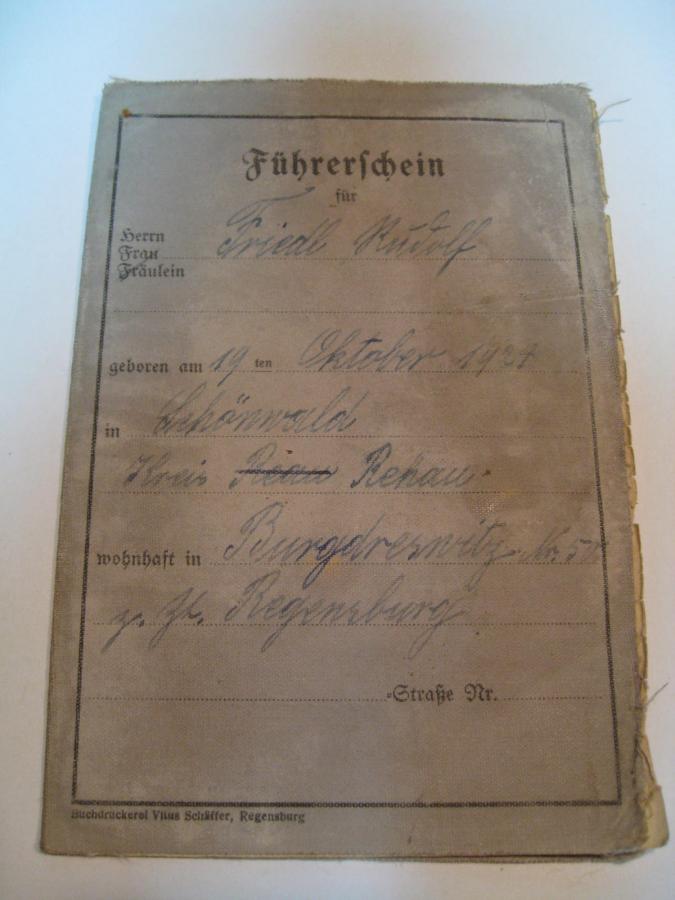 Führerschein
für
Herrn
Frau Friedl Rudolf
Fräulein
geboren am 19 ten Oktober 1924
in Schönwald
Kreis Reau Rehau.
wohnhaft in Burgdreswitz Nr. 5
z. Zt. Regensburg
-Straße Nr.
Buchdruckerei Vitus Schäffer, Regensburg